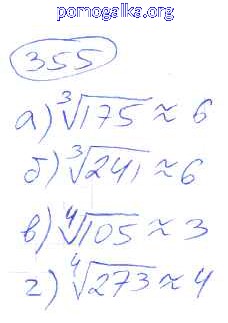 pomogalka.org
355
а) ∛175 ≈ 6
б) ∛241 ≈ 6
в) ∜105 ≈ 3
г) ∜273 ≈ 4